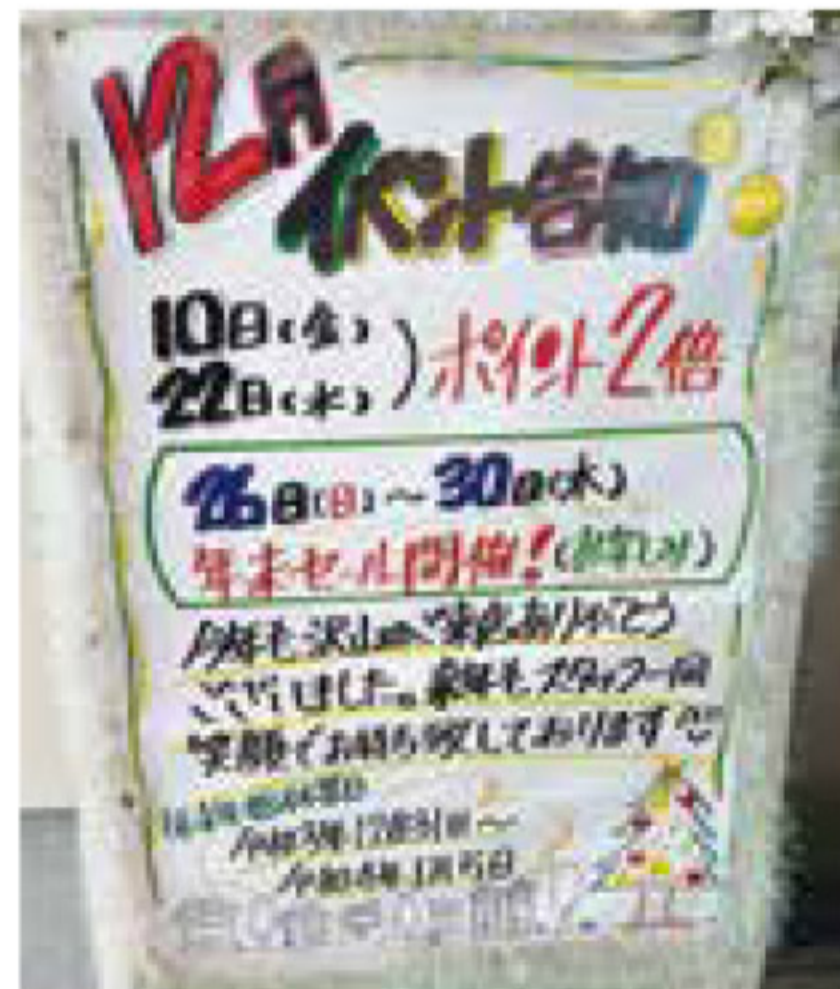 12月
イベント告知
10日(金)
22日(水)
ポイント2倍
26日(日)～30日(木)
年末セール開催!
今年も沢山のご来店ありがとう
ございました。来年もスタッフ一同
笑顔でお待ち致しております
令和3年12月31日～
令和4年1月5日